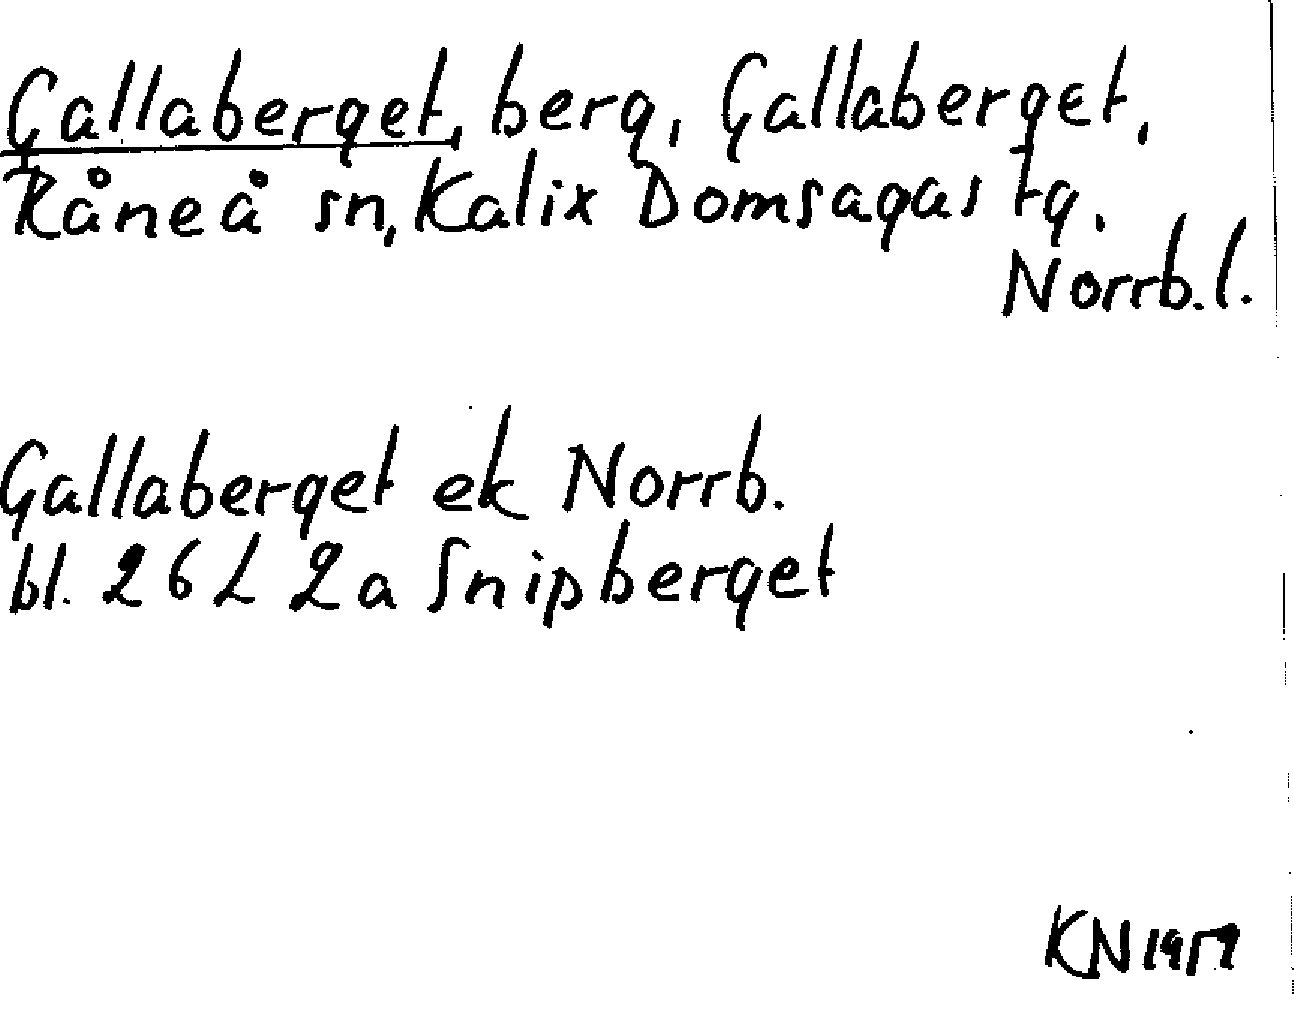 Gallaberget, berg, Gallaberget,
Råneå sn, Kalix Domsagas tg.
Norrb.l.
Gallaberget ek Norrb.
bl. 26 L 2a Snipberget
KN 1959